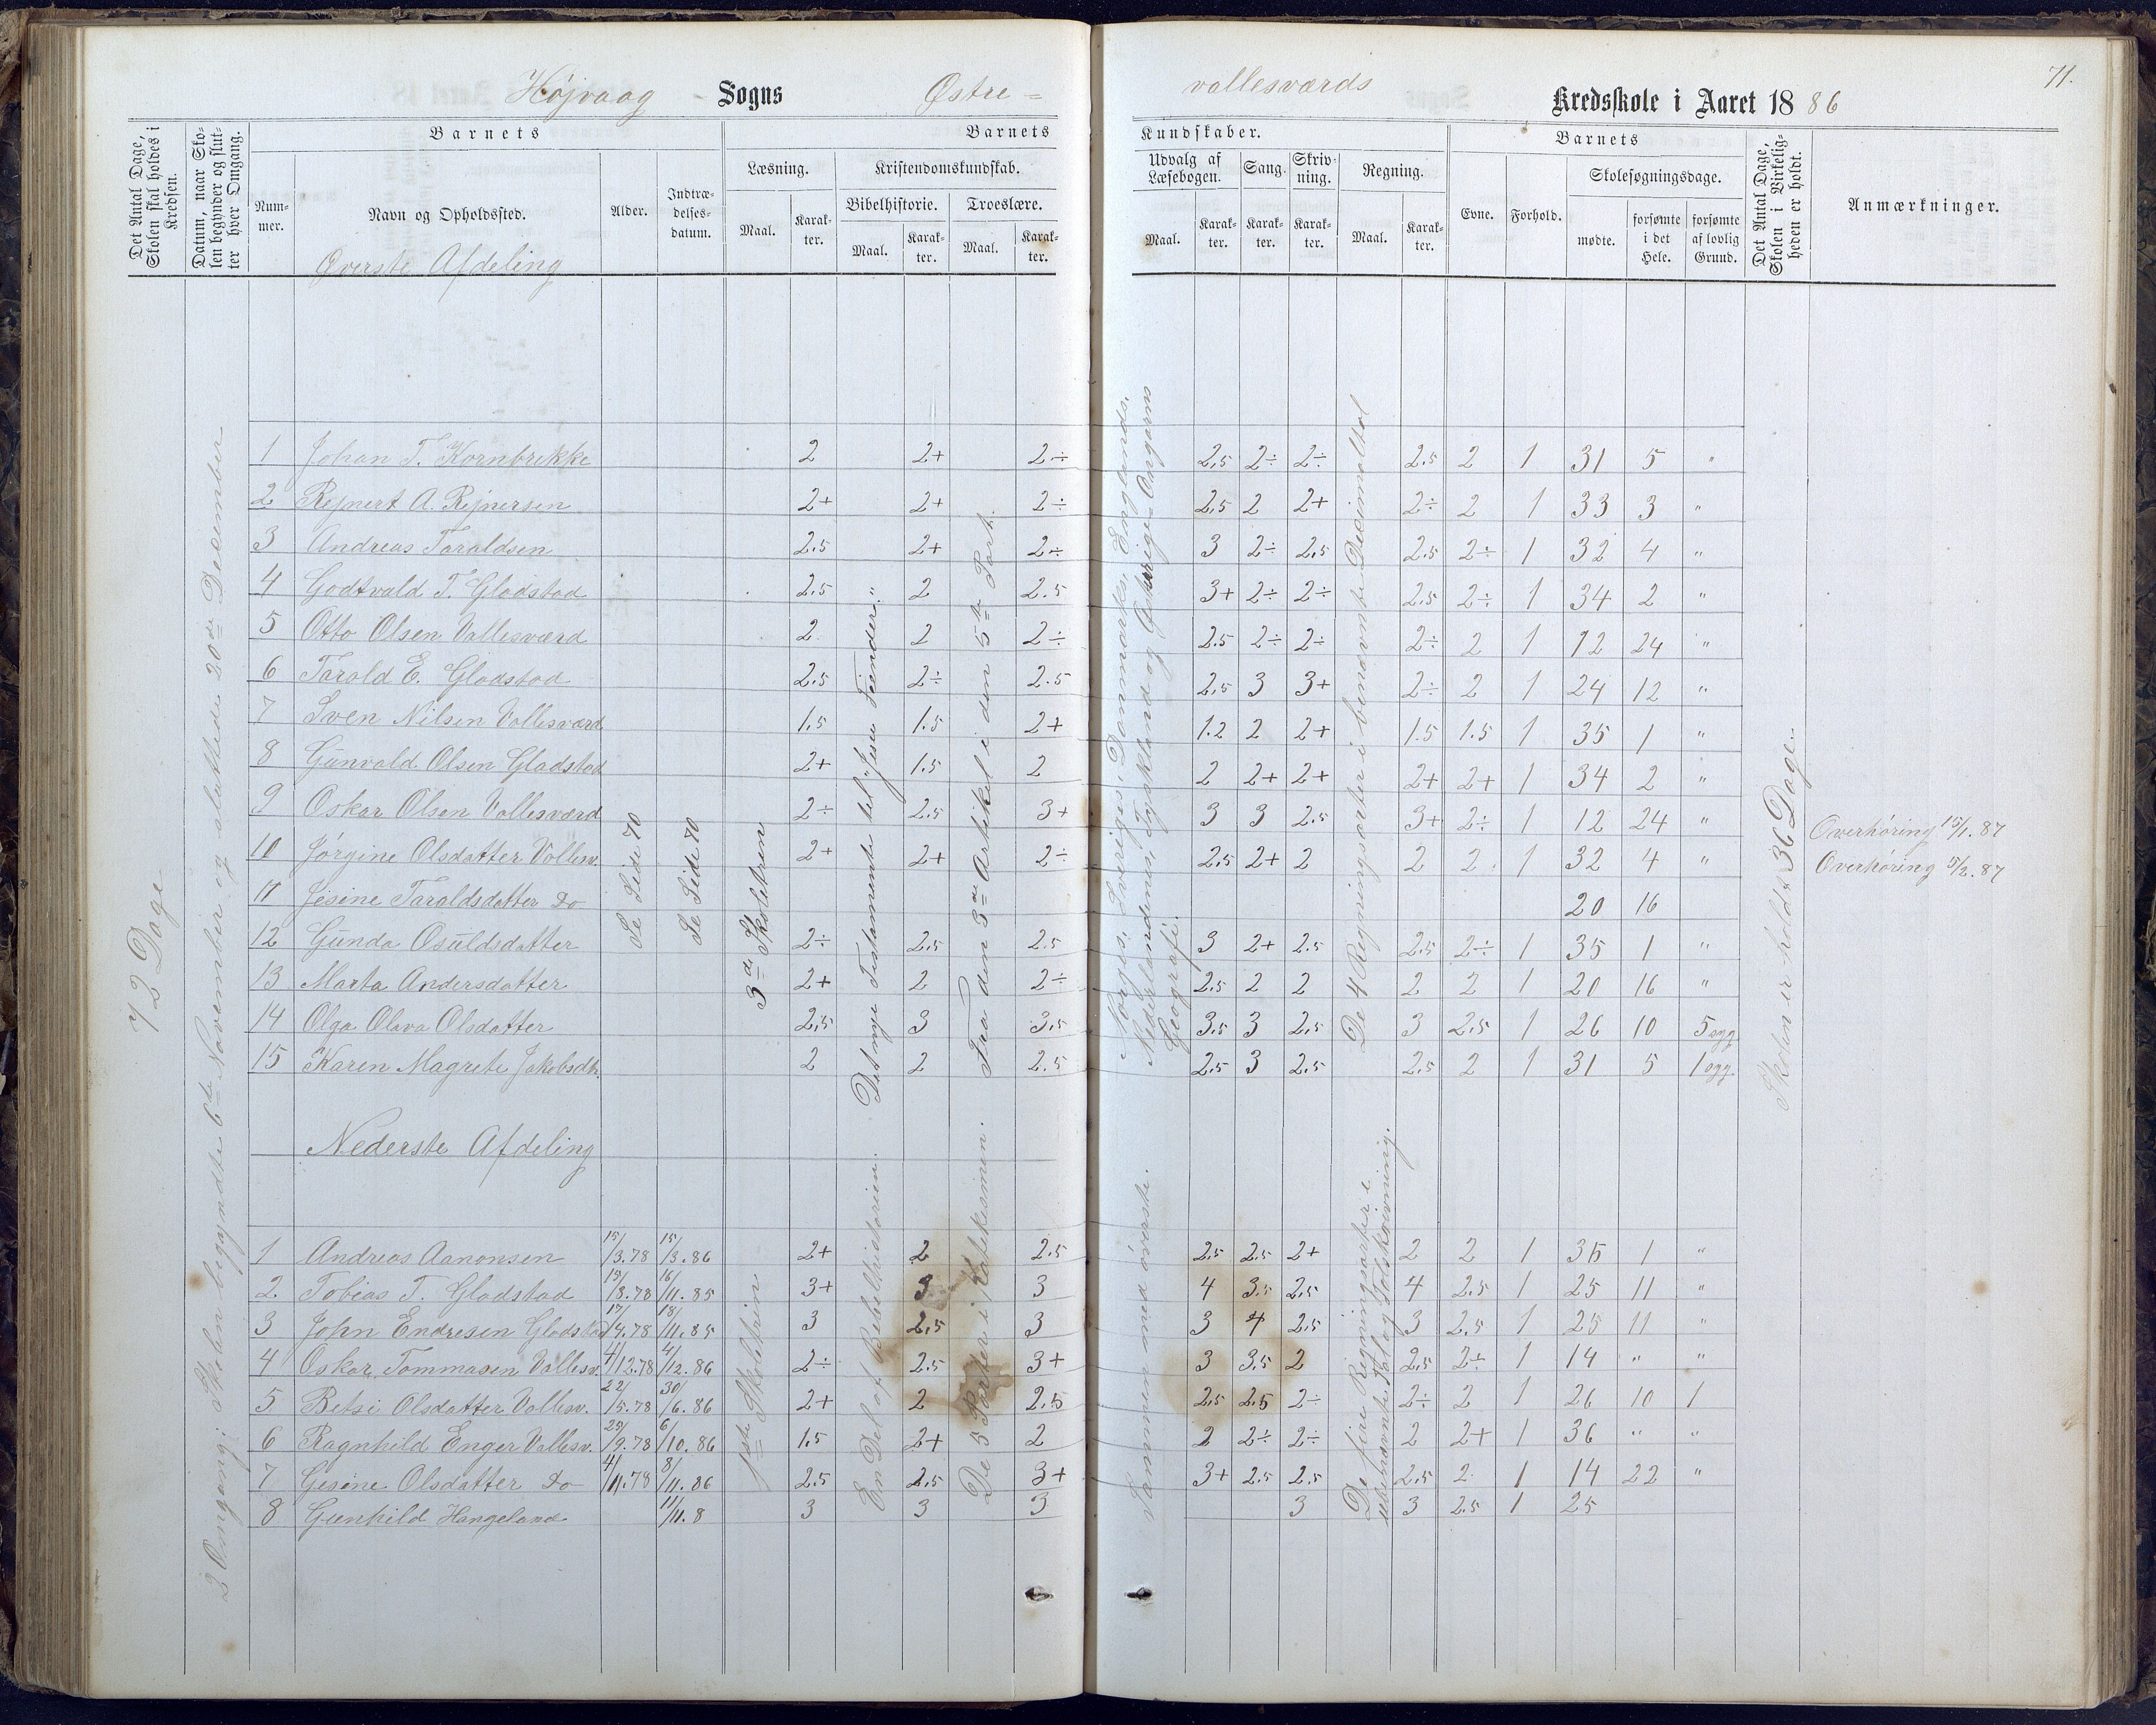 71.
Højvaag Sogns Østre - vallesværds Kredsskole i Aaret 18 86
Det Antal Dage, Skolen skal holdes i Kredsen.
Datum, naar Skolen begynder og slutter hver Omgang.
Barnets
Nummer.
Navn og Opholdssted.
Alder.
Indtrædelsesdatum.
Barnets Kundskaber.
Læsning.
Maal.
Karakter.
Kristendomskundskab.
Bibelhistorie.
Maal.
Karakter.
Troeslære.
Maal.
Karakter.
Udvalg af Læsebogen.
Maal.
Karakter.
Sang.
Karakter.
Skrivning.
Karakter.
Regning.
Maal.
Karakter.
Barnets
Evne.
Forhold.
Skolesøgningsdage.
mødte.
forsømte i det Hele.
forsømte af lovlig Grund.
Det Antal Dage, Skolen i Virkeligheden er holdt.
Anmærkninger.
Øverste Afdeling
72 Dage
2 Omgang: Skolen begyndte 6te November og sluttede 20de December
Se Side 70
Se Side 70
3de Skoletrin
Det nye Testamente til "Jesu Fiender."
Fra den 3die Artikel i den 5te Part.
Norges, Sveriges, Danmarks, Englands, Nederlandenes, Tysklands og Østerrige-Ungarns Geografi.
De 4 Regningsarter i benævnte Decimaltal
Skolen er holdt 36 Dage.
1 Johan T. Kornbrekke 2 2+ 2÷ 2,5 2÷ 2÷ 2.5 2 1 31 5 "
2 Rejnert A. Rejnersen 2+ 2+ 2÷ 2,5 2 2+ 2÷ 2 1 33 3 "
3 Andreas Taraldsen 2.5 2+ 2÷ 3 2÷ 2.5 2.5 2÷ 1 32 4 "
4 Godtvald T. Gladstad 2.5 2 2.5 3+ 2÷ 2÷ 2.5 2÷ 1 34 2 "
5 Otto Olsen Vallesværd 2 2 2÷ 2.5 2÷ 2÷ 2÷ 2 1 12 24 "
6 Tarald E. Gladstad 2.5 2÷ 2.5 2,5 3 3+ 2÷ 2 1 24 12 "
7 Sven Nilsen Vallesværd 1.5 1.5 2+ 1.2 2 2+ 1.5 1.5 1 35 1 "
8 Gunvald Olsen Gladstad 2+ 1.5 2 2 2+ 2+ 2+ 2+ 1 34 2 "
9 Oskar Olsen Vallesværd 2÷ 2.5 3+ 3 3 2.5 3+ 2÷ 1 12 24 " Overhøring 15/1.87
10 Jørgine Olsdatter Vallesv. 2+ 2+ 2÷ 2.5 2+ 2 2 2 1 32 4 " Overhøring 5/2.87
11 Jesine Taraldsdatter Do 20 16
12 Gunda Osuldsdatter 2÷ 2.5 2.5 3 2+ 2.5 2.5 2÷ 1 35 1 "
13 Marta Andersdatter 2+ 2 2÷ 2.5 2 2 2 2 1 20 16 "
14 Olga Olava Olsdatter 2.5 3 3.5 3.5 3 2.5 3 2.5 1 26 10 5 sgg
15 Karen Magrete Jakobsdtr. 2 2 2.5 2.5 3 2.5 2.5 2 1 31 5 1 sgg.
Nederste Afdeling
1ste Skoletrin
En Del af Bibelhistorien.
De 5 Parter i Katekismen.
Sammen med øverste.
De fire Regningsarter i ubenævnte Tal og Talskrivning.
1 Andreas Aanonsen 15/3.78 15/3.86 2+ 2 2.5 2.5 2.5 2+ 2 2 1 35 1 "
2. Tobias T. Gladstad 19/8.78 16/11.85 3+ 3 3 4 3.5 2.5 4 2.5 1 25 11 "
3 John Endresen Gladstad 17/4.78 18/11.85 3 2,5 3 3 4 2.5 3 2.5 1 25 11 "
4 Oskar Tommasen Vallesv. 4/12.78 4/12.86 2÷ 2.5 3+ 3 3,5 2 2.5 2÷ 1 14 " "
5 Betsi Olsdatter Vallesv. 22/5.78 30/6.86 2+ 2 2.5 2.5 2.5 2÷ 2÷ 2 1 26 10 1
6 Ragnhild Enger Vallesv. 25/9.78 6/10.86 1.5 2+ 2 2 2÷ 2÷ 2 2+ 1 36 " "
7 Gesine Olsdatter Do 4/11.78 8/11.86 2.5 2.5 3+ 3+ 2.5 2.5 2.5 2. 1 14 22 "
8 Gunhild Hangeland 11/11.8 3 3 3 3 3 2.5 1 25